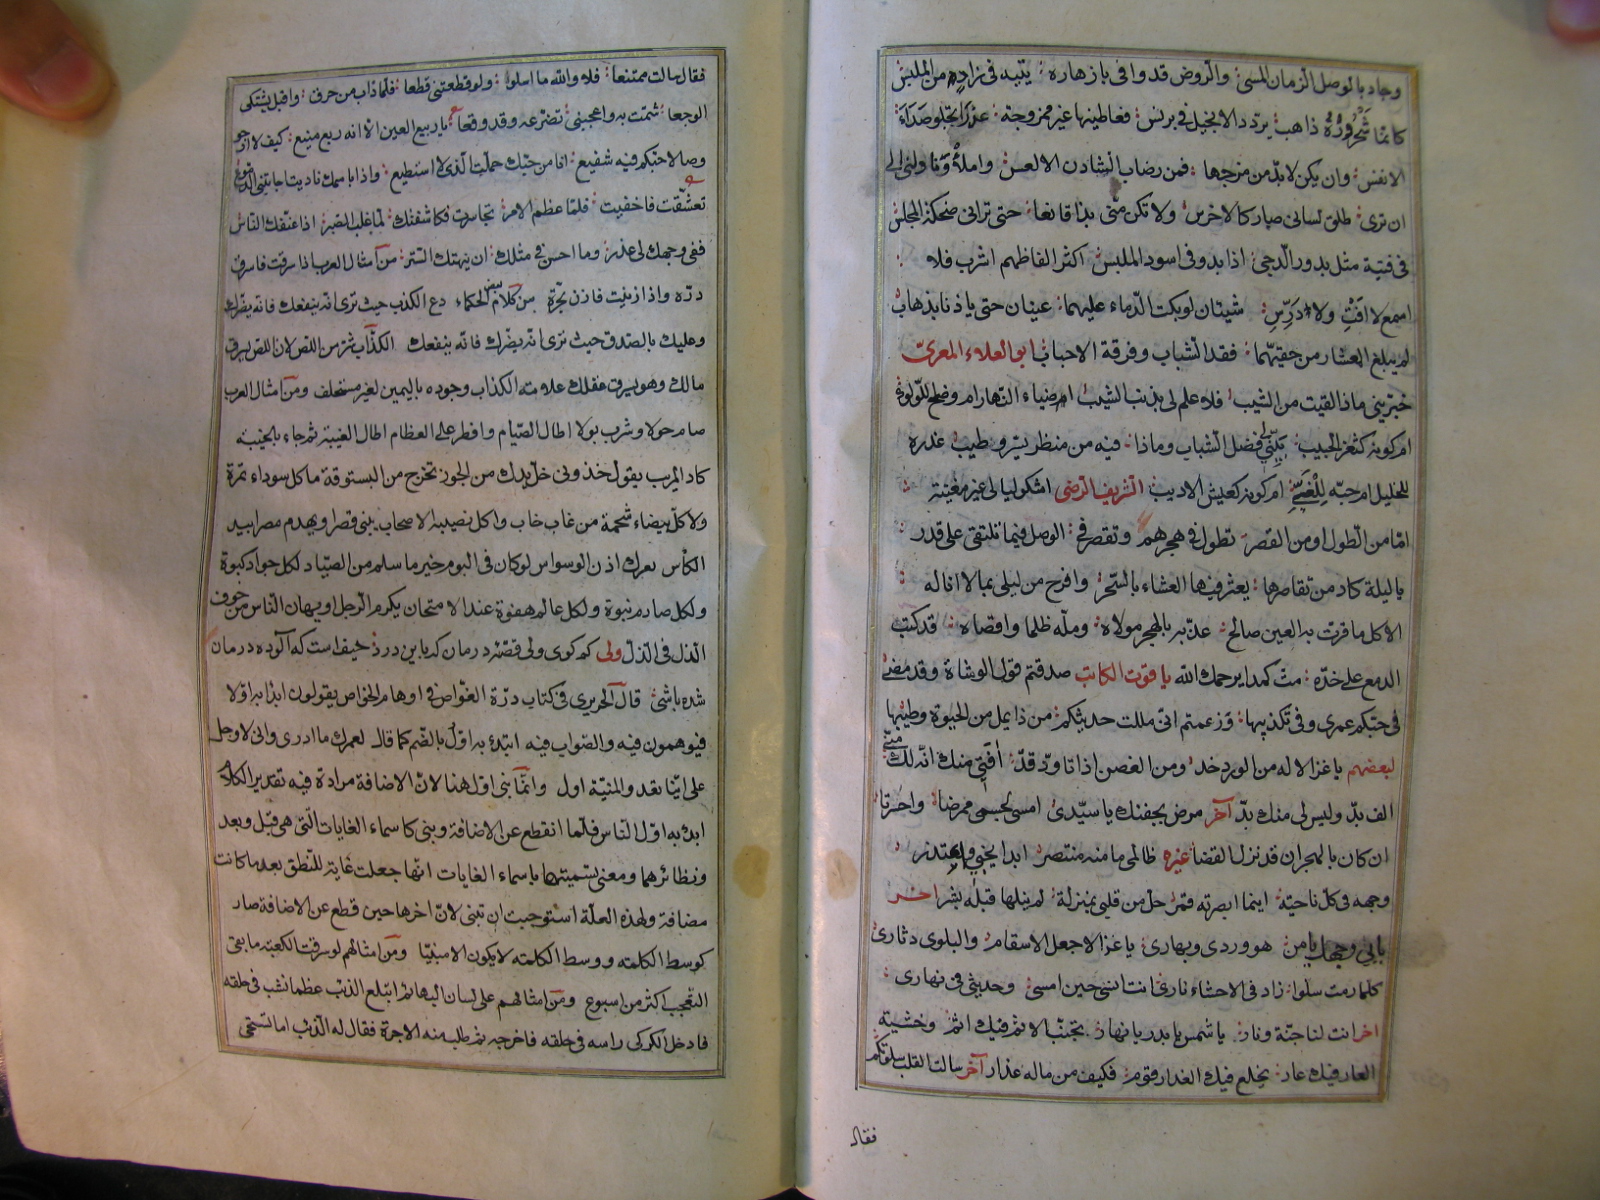 وجاد بالوصل الزمان المسئ والروض قد وافى بازهاره يتيه فى زاده من الملبس
كانما شحروره ذاهب يردد الانجيل فى برنس فعاطينها غير ممزوجة عذراء تجلو صداء
الانفس وان يكن لابد من مزجها فمن رضاب الشادن الالعس واملأ وناولنى الى
ان ترى طلق لسانى صار كالاخرس ولا تكن منى بذا قانعا حتى ترانى ضحكة المجلس
فى فتية مثل بدور الدجى اذا بدوا فى اسود الملبس اكثر الفاظهم اشرب فلا
اسمع لا افت ولا درس شيئان لو بكت الدماء عليهما عينان حتى ياذنا بذهاب
لم يبلغ المعشار من حقيهما فقد الشباب وفرقة الاحباب ابو العلاء المعرى
خبرينى ماذا لقيت من الشيب فلا علم لى بذنب الشيب ام ضياء النهار ام وضح اللولوء
ام كونه كثغر الحبيب بينى لى فضل الشباب وماذا فيه من منظر يسر وطيب غدره
للخليل ام حبه للغى ام كونه كعيش الاديب الشريف الرضى اشكو ليالى غير مغنية
اما من الطول او من القصر تطول فى هجرهم وتقصر فى الوصل فيما نلتقى على قدر
يا ليلة كاد من تقاصرها يعثر فيها العشاء بالسحر وافرح من ليلى بما لا اناله
الا كل ما قرت به العين صالح عذبه بالهجر مولاه ومله ظلما واقصاه قد كتب
الدمع على خده مت كمدا يرحمك الله ياقوت الكاتب صدقتم قول الوشاة وقد مضى
فى حبكم عمرى وفى تكذيبها وزعمتم انى مللت حديثكم من ذا يمل من الحيوة وطيبها
لبعضهم يا غزالا له من الورد خد ومن الغصن اذا تاود قد أفتى منك انه لك منى
الف بد وليس لى منك بد آخر مرض بجفنك يا سيدى امسى لجسمى ممرضا واحسرتا
ان كان بالهجران قد نزل القضا غيره ظالمى ما منه منتصر ابدا يجنى واعتذر
وجهه فى كل ناحية اينما ابصرته قمر حل من قلبى بمنزلة لم ينلها قبله بشر اخر
بابى وجهك يا من هو وردى وبهارى يا غزالا جعل الاسقام والبلوى دثارى
كلما رمت سلوا زاد فى الاحشاء نارى انت انسى حين امسى وحديثى فى نهارى
اخر انت لنا جنة ونار يا شمس يا بدر يا نهار تجنب الاثم فيك اثم وخشية
العار فيك عار يخلع فيك العذار قوم فكيف من ماله عذار آخر سالت القلب سلوتكم
فقال
فقال سالت ممتنعا فلا والله ما اسلو ولو قطعتنى قطعا فلما ذاب من حرق واقبل يشتكى
الوجعا شمتت به واعجبنى تضرعه وقد وقعا يا ربيع العين الا انه ربع منيع كيف لا ارجو
وصالا حبكم فيه شفيع انا من حبك حملت الذى لا استطيع واذا باسمك ناديت اجابتنى الدموع
تعشقت فاخفيت فلما عظم الامر تجاسرت فكاشفتك لما غلب الصبر اذا عنفك الناس
ففى وجهك لى عذر وما احسن فى مثلك ان ينهتك الستر من امثال العرب اذا سرقت فاسرق
دره واذا زنيت فازن بحرة من كلام بعض الحكماء دع الكذب حيث ترى انه ينفعك فانه يضرك
وعليك بالصدق حيث ترى انه يضرك فانه ينفعك الكذاب شر من اللص لان اللص يسرق
مالك وهو يسرق عقلك علامته الكذاب وجوده باليمين لغير مستحلف ومن امثال العرب
صام حولا وشرب بولا اطال الصيام وافطر على العظام اطال الغيبة ثم جاء بالخيبة
كاد المريب يقول خذونى خل يدك من الجوز تخرج من البستوقة ما كل سوداء تمرة
ولا كل بيضاء شحمة من غاب خاب واكل نصيبه الاصحاب يبنى قصرا ويهدم مصرا بيد
الكأس يعرك اذن الوسواس لو كان فى البوم خير ما سلم من الصياد لكل جواد كبوة
ولكل صارم نبوة ولكل عالم هفوة عند الامتحان يكرم الرجل او يهان الناس من خوف
الذل فى الذل ولى كم كوى ولى قصه درمان كه باين درد حيفست كه آلوده درمان
شده باشى قال الحريرى فى كتاب درة الغواص فى اوهام الخواص يقولون ابدا به اولا
فيوهمون فيه والصواب فيه ابتدئ به اول بالضم كما قال لعمرك ما ادرى وانى لاوجل
على اينا تعدو المنية اول وانما بنى اول هنا لان الاضافة مرادة فيه تقدير الكلام
ابدء به اول الناس فلما انقطع عن الاضافة وبنى كاسماء الغايات التى هى قبل وبعد
ونظائرهما ومعنى تسميتهما باسماء الغايات انها جعلت غاية للنطق بعدما كانت
مضافة ولهذه العلة استوجبت ان تبنى لان اخرها حين قطع عن الاضافة صار
كوسط الكلمته ووسط الكلمته لا يكون الا مبنيا ومن امثالهم لو سرقت الكعبة ما بقى
التعجب اكثر من اسبوع ومن امثالهم على لسان البهائم ابتلع الذئب عظما نشب فى حلقه
فادخل الكركى راسه فى حلقه فاخرجه ثم طلب منه الاجرة فقال له الذئب اما تستحى